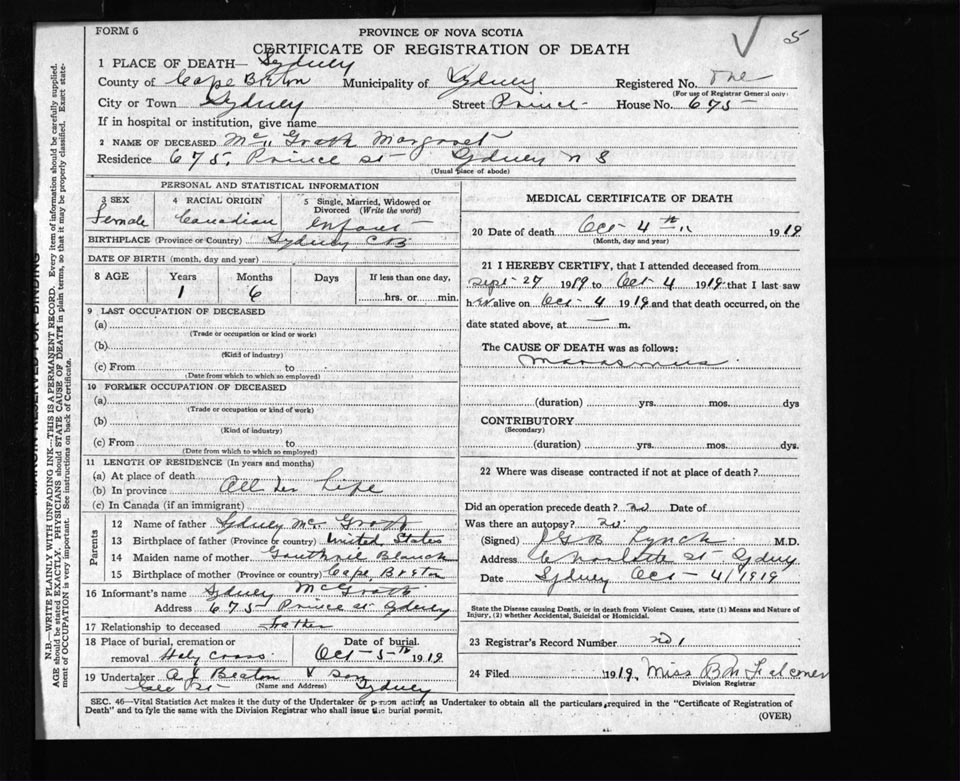 FORM 6
PROVINCE OF NOVA SCOTIA
5
CERTIFICATE OF REGISTRATION OF DEATH
1 PLACE OF DEATH— Sydney
County of Cape Breton Municipality of Sydney Registered No. One
(For use of Registrar General only)
City or Town Sydney Street Prince House No. 675
If in hospital or institution, give name
2 NAME OF DECEASED McGrath Margaret
Residence 675, Prince st Sydney N S
(Usual place of abode)
PERSONAL AND STATISTICAL INFORMATION
3 SEX 4 RACIAL ORIGIN 5 Single, Married, Widowed or Divorced (Write the word)
Female Canadian Infant
BIRTHPLACE (Province or Country) Sydney CB
DATE OF BIRTH (month, day and year)
8 AGE Years Months Days If less than one day,
1 6 hrs. or min.
9 LAST OCCUPATION OF DECEASED
(a)
(Trade or occupation or kind or work)
(b)
(Kind of industry)
(c) From to
(Date from which to which so employed)
10 FORMER OCCUPATION OF DECEASED
(a)
(Trade or occupation or kind of work)
(b)
(Kind of industry)
(c) From to
(Date from which to which so employed)
11 LENGTH OF RESIDENCE (In years and months)
(a) At place of death
(b) In province All her Life
(c) In Canada (if an immigrant)
Parents
12 Name of father Sydney McGrath
13 Birthplace of father (Province or country) United States
14 Maiden name of mother Blanch
15 Birthplace of mother (Province or country) Cape Breton
16 Informant's name Sydney McGrath
Address 675 Prince st Sydney
17 Relationship to deceased Father
18 Place of burial, cremation or removal Holy Cross Date of burial. Oct 5th 1919
19 Undertaker A J Beaton & Son
(Name and Address) Sydney
MEDICAL CERTIFICATE OF DEATH
20 Date of death Oct 4th 1919
(Month, day and year)
21 I HEREBY CERTIFY, that I attended deceased from
Sept 27 1919 to Oct 4 1919 that I last saw
her alive on Oct 4 1919 and that death occurred, on the
date stated above, at — m.
The CAUSE OF DEATH was as follows:
Marasmus
(duration) yrs. mos. dys
CONTRIBUTORY
(Secondary)
(duration) yrs. mos. dys.
22 Where was disease contracted if not at place of death?
Did an operation precede death? no Date of
Was there an autopsy? no
(Signed) Lynch M.D.
Address Charlotte St Sydney
Date Sydney Oct 4/1919
State the Disease causing Death, or in death from Violent Causes, state (1) Means and Nature of
Injury, (2) whether Accidental, Suicidal or Homicidal.
23 Registrar's Record Number no 1
24 Filed 1919, Miss B M Falconer
Division Registrar
SEC. 46—Vital Statistics Act makes it the duty of the Undertaker or person acting as Undertaker to obtain all the particulars required in the "Certificate of Registration of
Death" and to fyle the same with the Division Registrar who shall issue the burial permit.
(OVER)
MARGIN RESERVED FOR BINDING
N.B.—WRITE PLAINLY WITH UNFADING INK—THIS IS A PERMANENT RECORD. Every item of information should be carefully supplied.
AGE should be stated EXACTLY. PHYSICIANS should STATE CAUSE OF DEATH in plain terms, so that it may be properly classified. Exact state-
ment of OCCUPATION is very important. See instructions on back of Certificate.